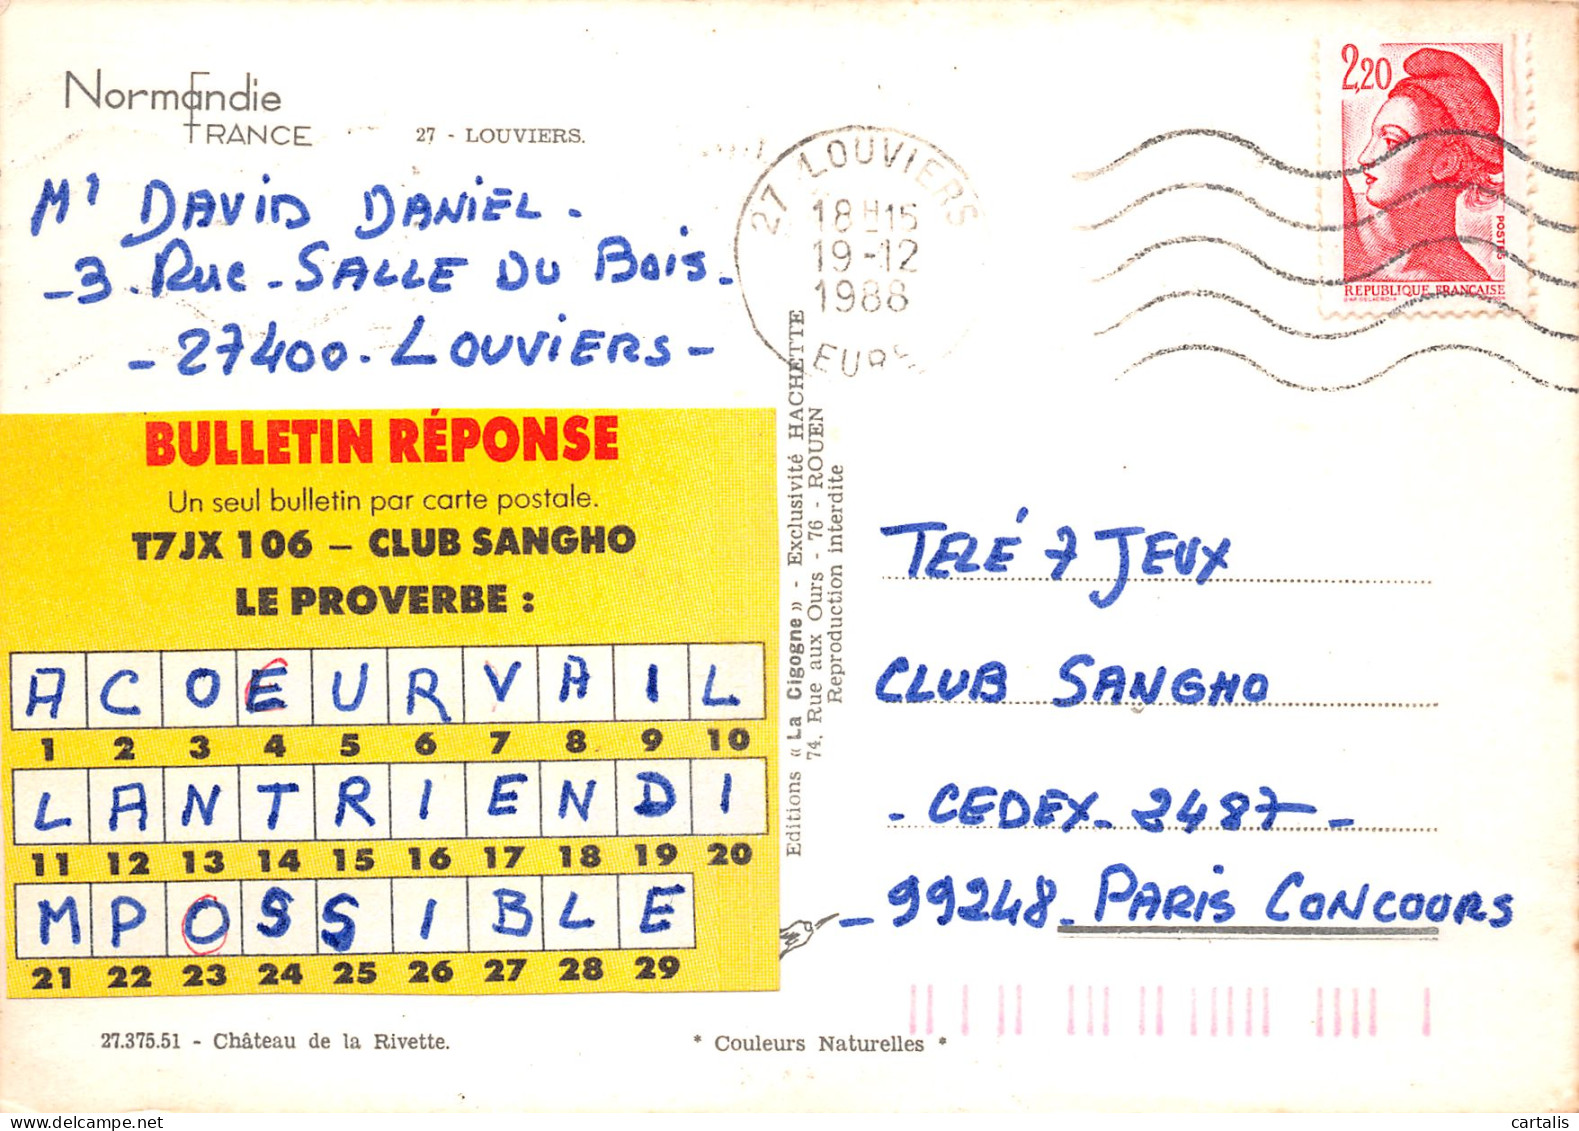 Normandie
FRANCE
27 - LOUVIERS.
Mr DAVID DANIEL -
- 3 - Rue - SALLE DU Bois -
- 27400 - LOUVIERS -
27 LOUVIERS
18H15
19-12
1988
EURE
2,20
POSTES
REPUBLIQUE FRANÇAISE
BULLETIN RÉPONSE
Un seul bulletin par carte postale.
T7JX 106 – CLUB SANGHO
LE PROVERBE :
A C O E U R V A I L
1 2 3 4 5 6 7 8 9 10
L A N T R I E N D I
11 12 13 14 15 16 17 18 19 20
M P O S S I B L E
21 22 23 24 25 26 27 28 29
Editions « La Cigogne » - Exclusivité HACHETTE
74, Rue aux Ours - 76 - ROUEN
Reproduction interdite
TELÉ 7 JEUX
CLUB SANGHO
- CEDEX - 2487 -
- 99248 - PARIS CONCOURS
27.375.51 - Château de la Rivette.
* Couleurs Naturelles *
cartalis
www.delcampe.net